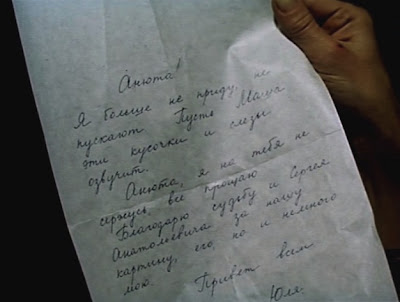 Анюта!
Я больше не приду, не
пускают Пусть Маша
эти кусочки и слезы
озвучит.
Анюта, я на тебя не
сержусь, все прощаю
Благодарю судьбу и Сергея
Анатольевича за нашу
картину, его, но и немного
мою. Привет всем
Юля.